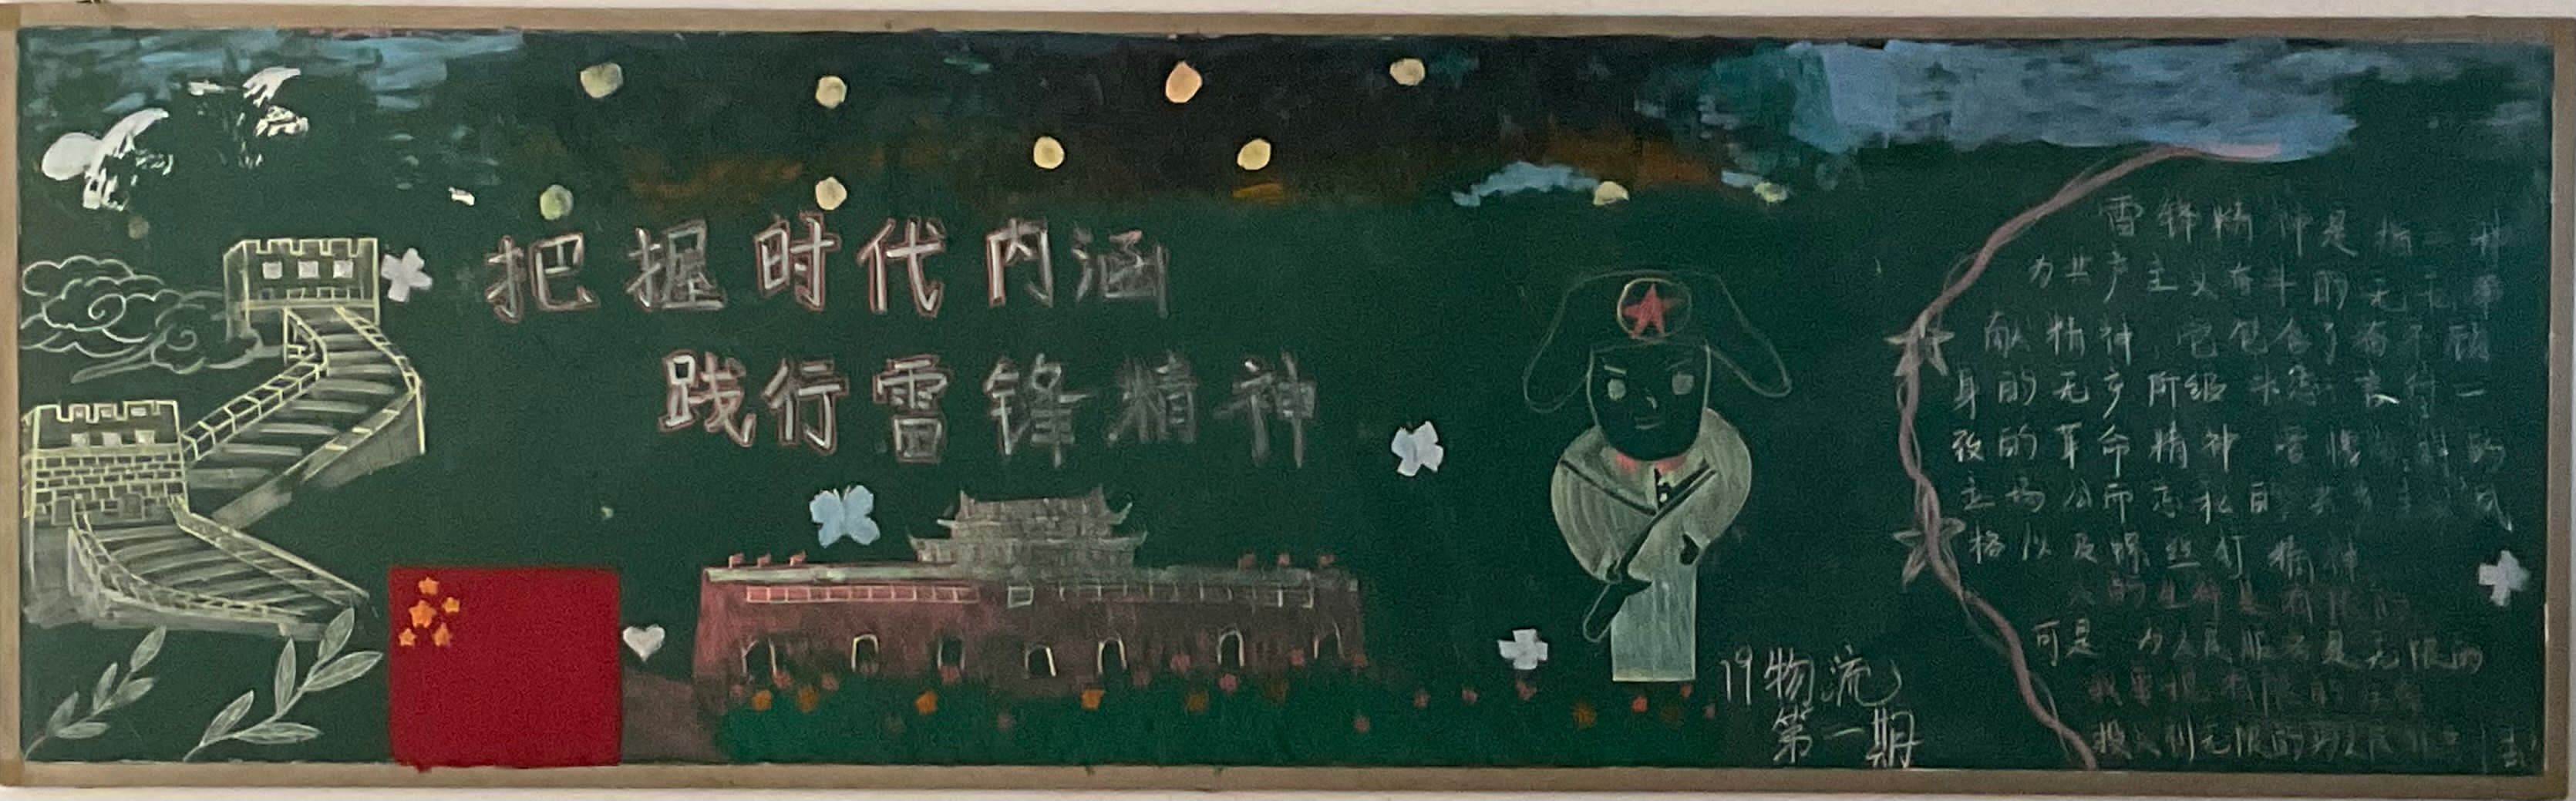 把握时代内涵
践行雷锋精神
雷锋精神是指一种
为共产主义奋斗的无私奉
献精神,它包含了奋不顾
身的无产阶级斗志言行一
致的革命精神 的
立场公而忘私的共产主义风
格以及螺丝钉精神
人的生命是有限的
可是 为人民服务是无限的
我要把有限的生命
投入到无限的为人民服务
19物流
第一期